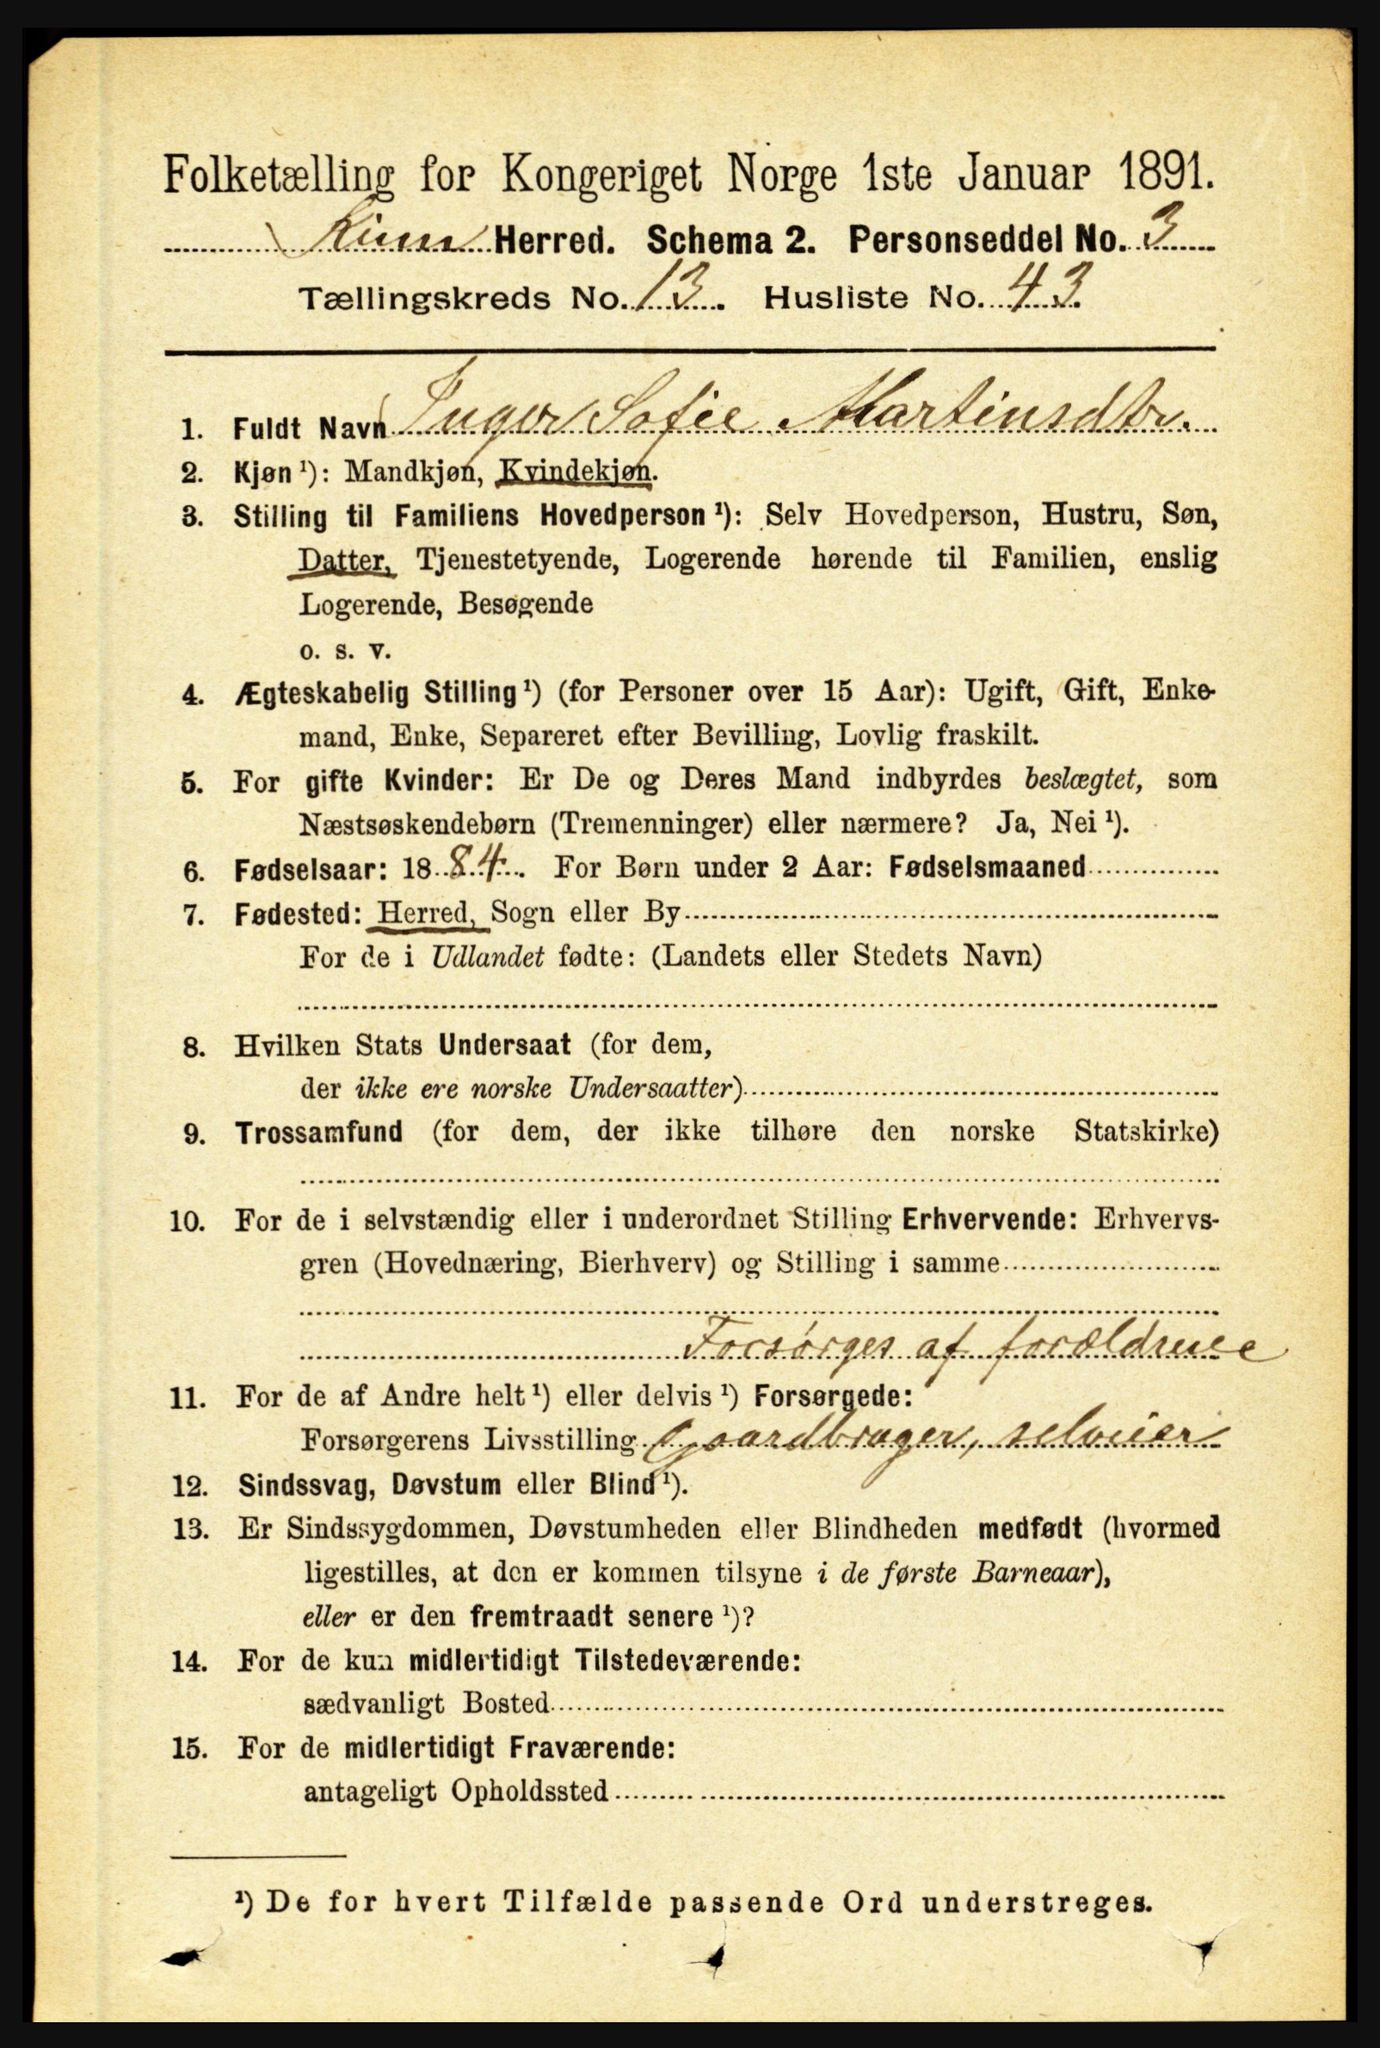 Folketælling for Kongeriget Norge 1ste Januar 1891.
Kinn Herred. Schema 2. Personseddel No. 3
Tællingskreds No. 13. Husliste No. 43.
1. Fuldt Navn Inger Sofie Martinsdtr.
2. Kjøn ¹): Mandkjøn, Kvindekjøn.
3. Stilling til Familiens Hovedperson ¹): Selv Hovedperson, Hustru, Søn,
Datter, Tjenestetyende, Logerende hørende til Familien, enslig
Logerende, Besøgende
o. s. v.
4. Ægteskabelig Stilling ¹) (for Personer over 15 Aar): Ugift, Gift, Enke-
mand, Enke, Separeret efter Bevilling, Lovlig fraskilt.
5. For gifte Kvinder: Er De og Deres Mand indbyrdes beslægtet, som
Næstsøskendebørn (Tremenninger) eller nærmere? Ja, Nei ¹).
6. Fødselsaar: 1884. For Børn under 2 Aar: Fødselsmaaned
7. Fødested: Herred, Sogn eller By
For de i Udlandet fødte: (Landets eller Stedets Navn)
8. Hvilken Stats Undersaat (for dem,
der ikke ere norske Undersaatter)
9. Trossamfund (for dem, der ikke tilhøre den norske Statskirke)
10. For de i selvstændig eller i underordnet Stilling Erhvervende: Erhvervs-
gren (Hovednæring, Bierhverv) og Stilling i samme
Forsørges af forældrene
11. For de af Andre helt ¹) eller delvis ¹) Forsørgede:
Forsørgerens Livsstilling Gaardbruger, selveier
12. Sindssvag, Døvstum eller Blind ¹).
13. Er Sindssygdommen, Døvstumheden eller Blindheden medfødt (hvormed
ligestilles, at den er kommen tilsyne i de første Barneaar),
eller er den fremtraadt senere ¹)?
14. For de kun midlertidigt Tilstedeværende:
sædvanligt Bosted
15. For de midlertidigt Fraværende:
antageligt Opholdssted
¹) De for hvert Tilfælde passende Ord understreges.